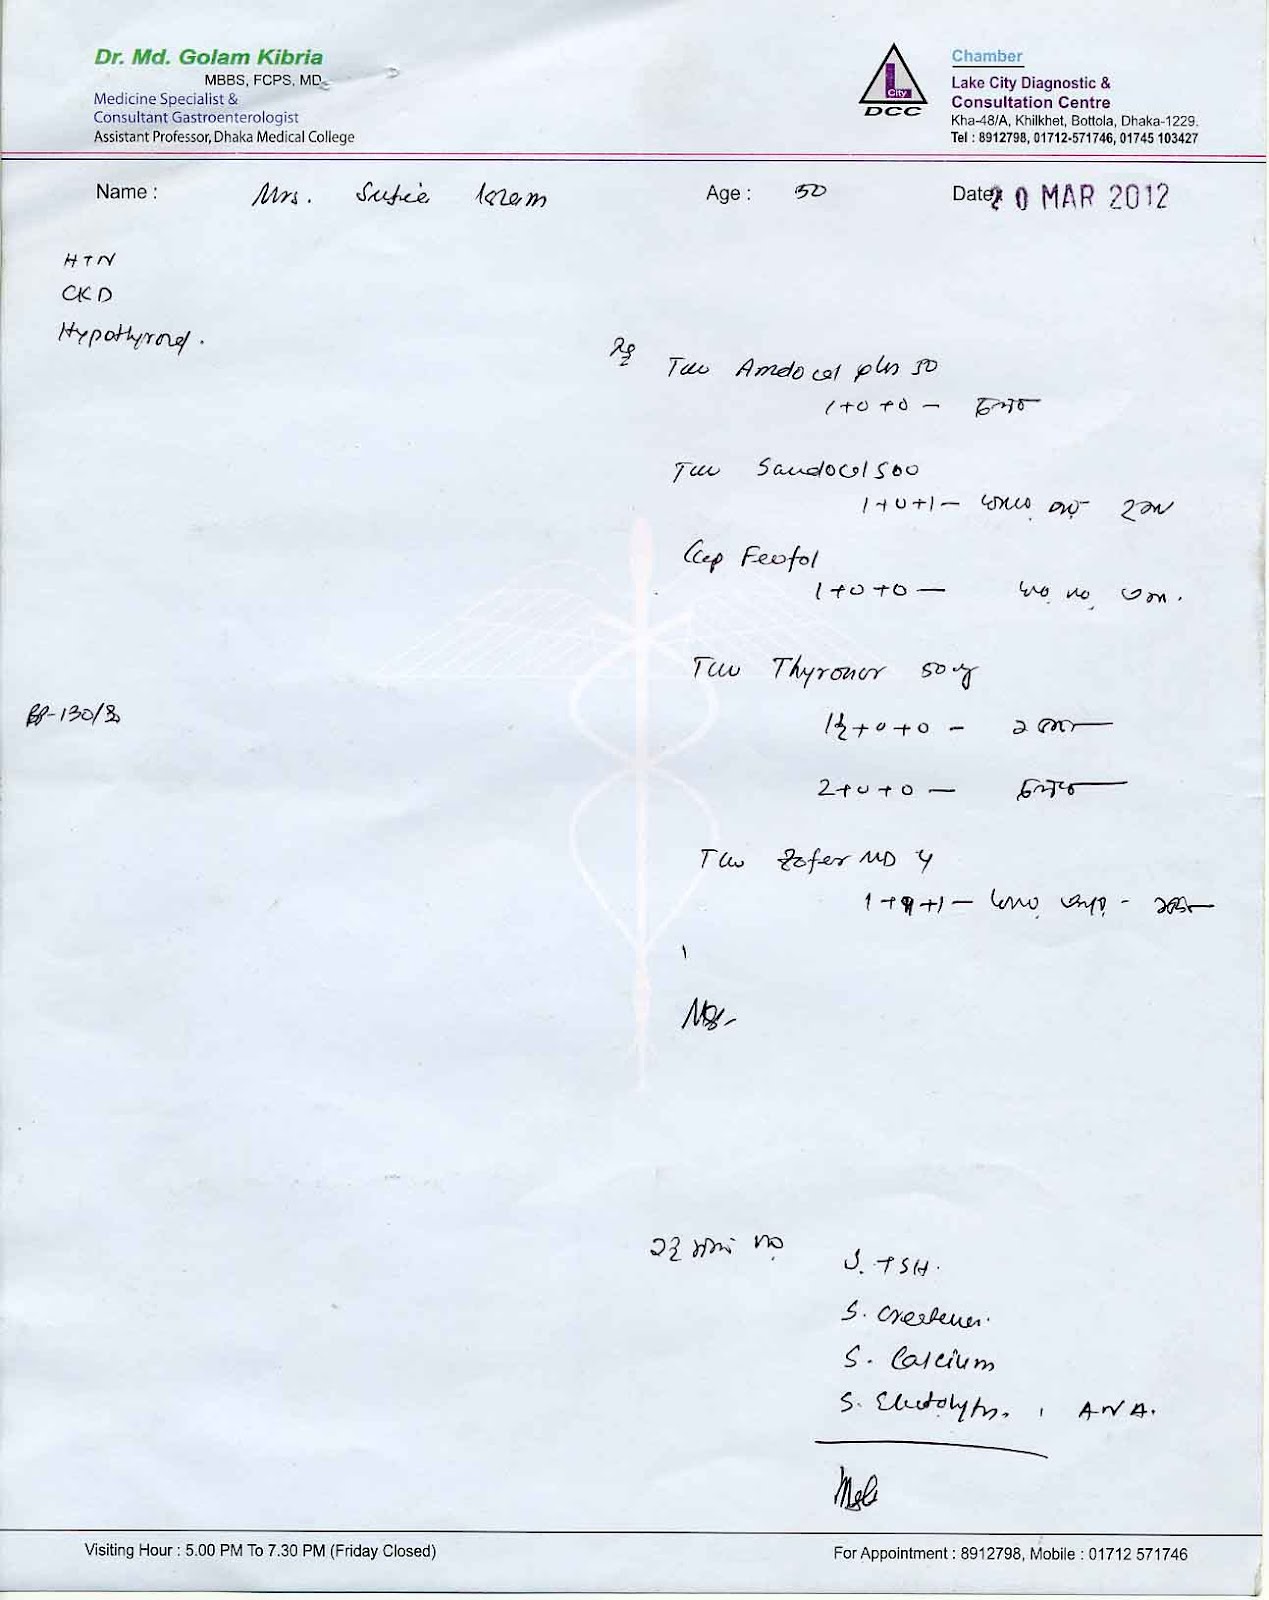 Dr. Md. Golam Kibria
MBBS, FCPS, MD
Medicine Specialist &
Consultant Gastroenterologist
Assistant Professor, Dhaka Medical College
City
DCC
Chamber
Lake City Diagnostic &
Consultation Centre
Kha-48/A, Khilkhet, Bottola, Dhaka-1229.
Tel : 8912798, 01712-571746, 01745 103427
Name : Mrs. Age : 50 Date 20 MAR 2012
HTN
CKD
Hypothyroid.
Rx
Tab Amdocal plus 50
1+0+0 –
Tab Sandocal 500
1+0+1 –
Cap Feofol
1+0+0 –
Tab Thyronor 50
BP-130/80
1½+0+0 –
2+0+0 –
Tab Zofer MD 4
1+1+1 –
S. TSH.
S. Creatinin.
S. Calcium
S. Electrolytes. , ANA.
Visiting Hour : 5.00 PM To 7.30 PM (Friday Closed)
For Appointment : 8912798, Mobile : 01712 571746